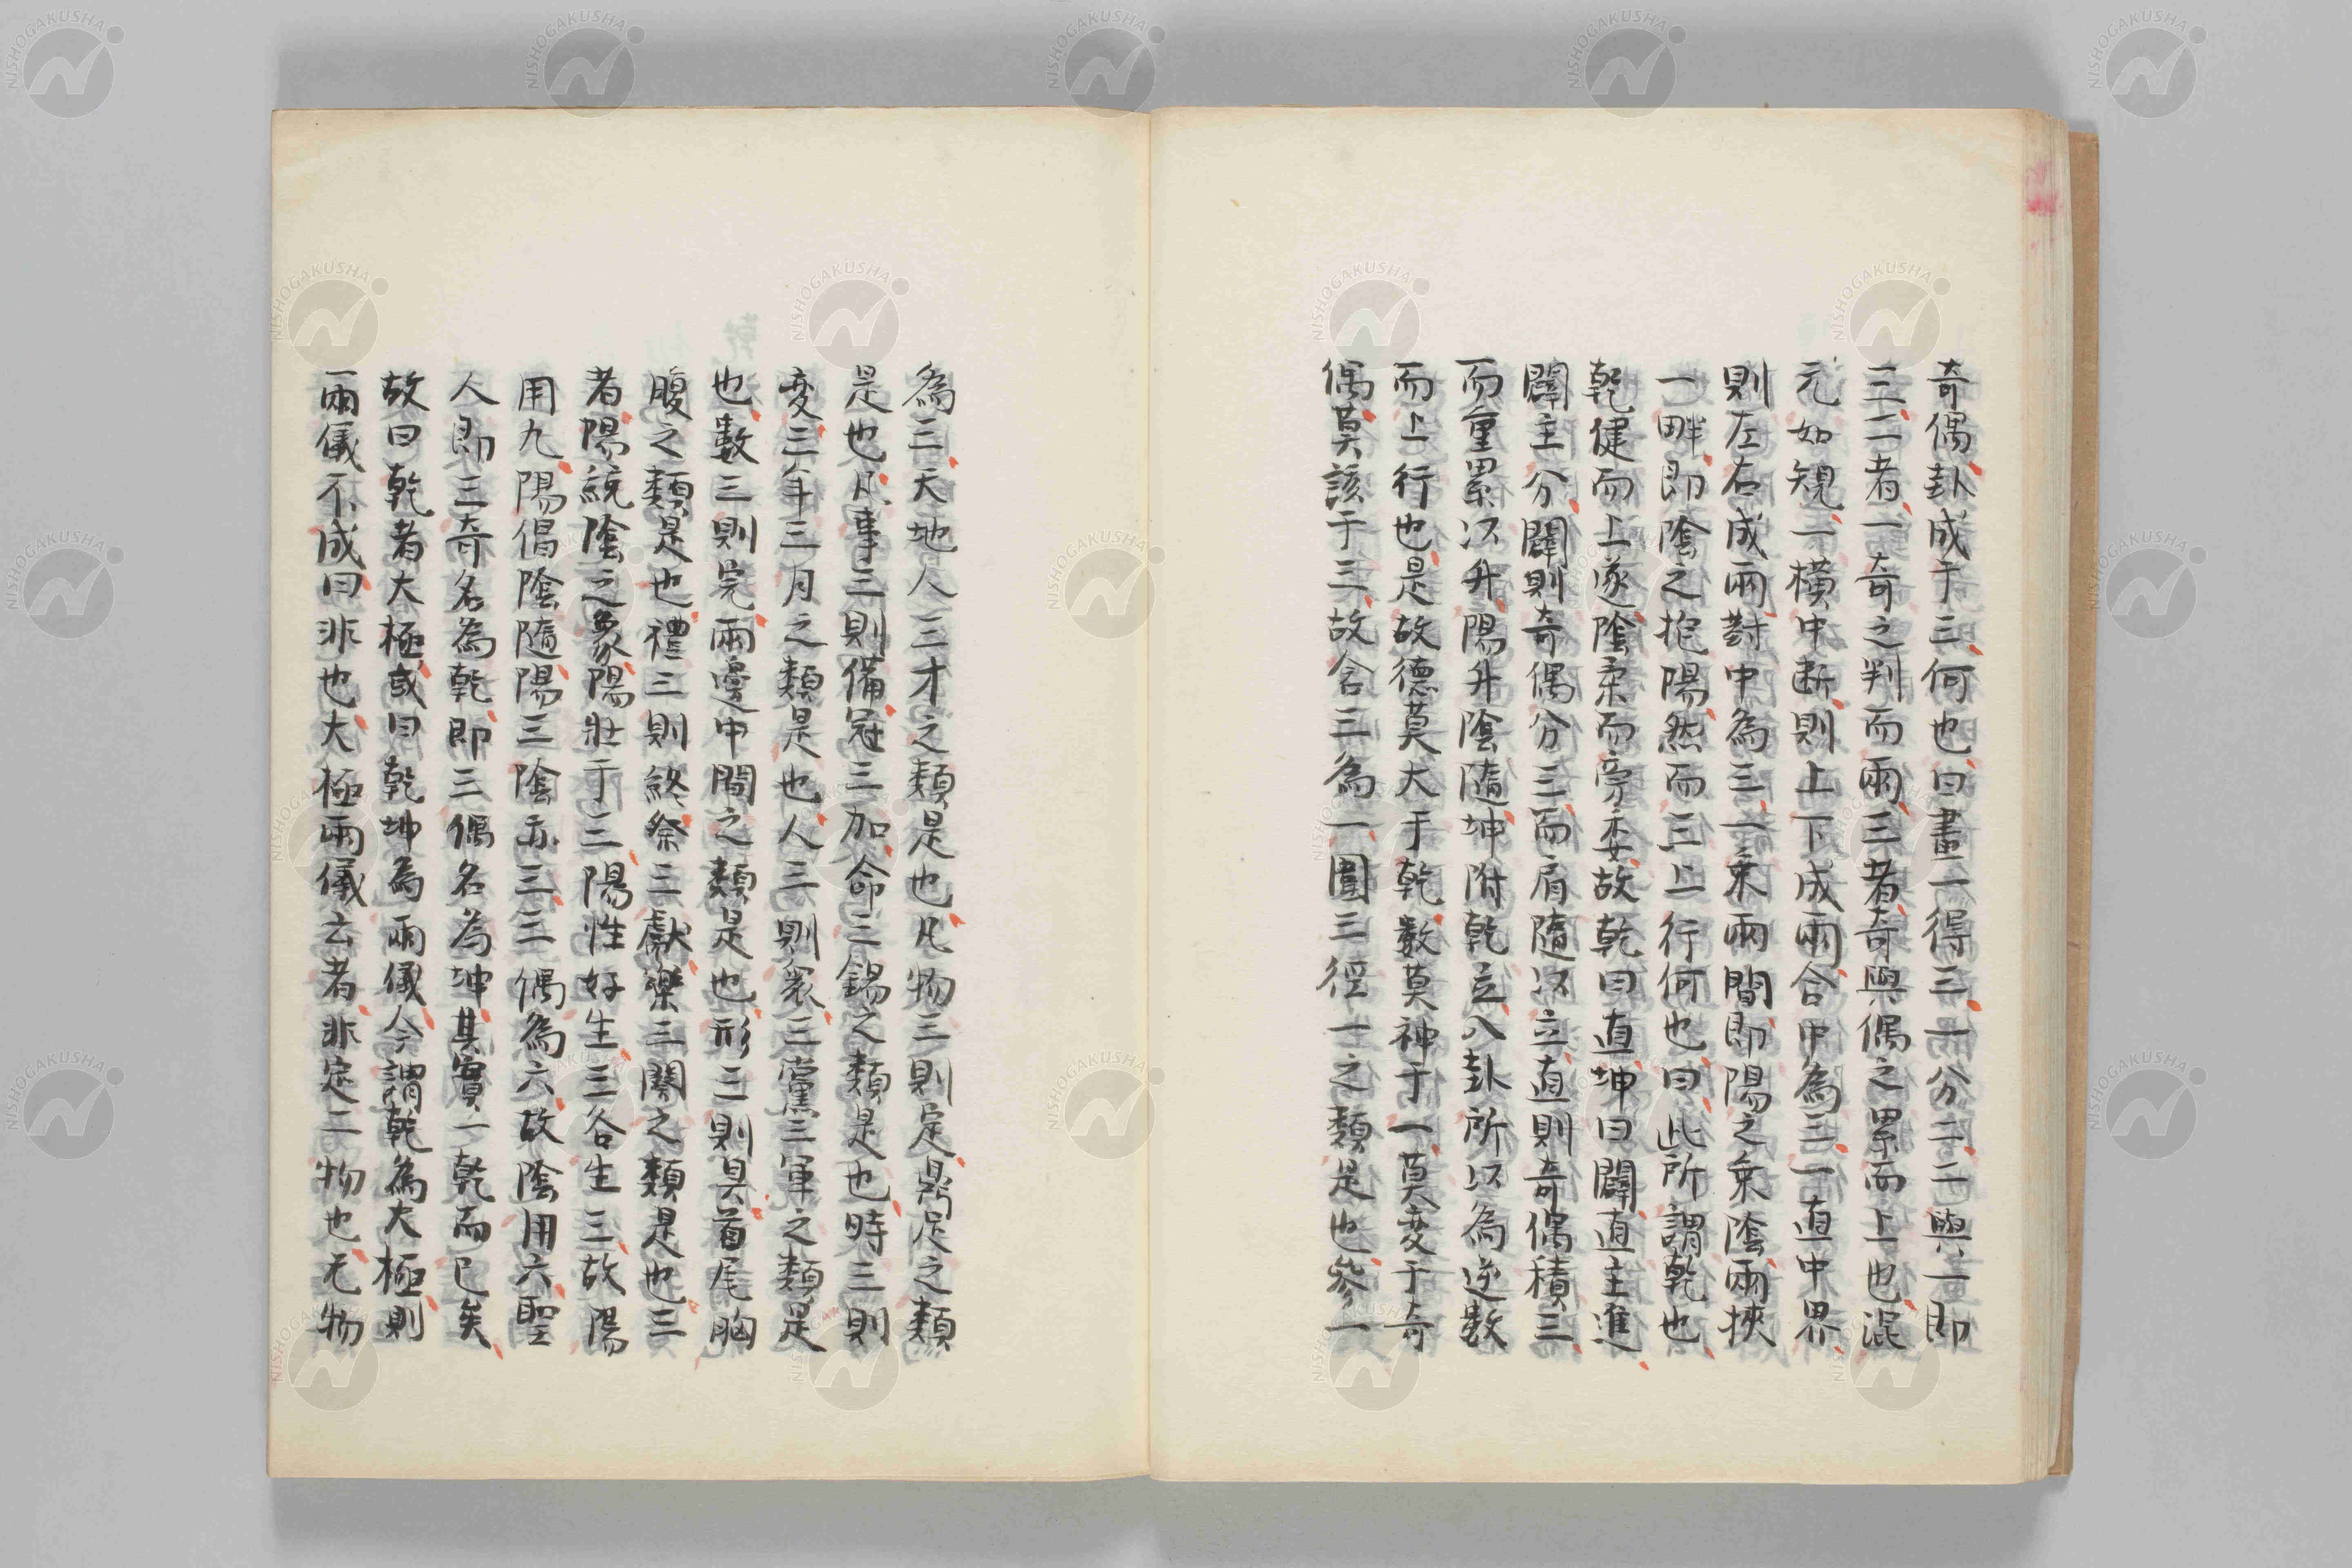 奇偶卦成于三何也曰畫一得三一分二二與一即
三二者一奇之判而兩三者奇與偶之累而上也混
元如規一橫中断則上下成兩合中為三一直中界
則左右成兩對中為三一乗兩間即陽之乗陰兩挾
一畔即陰之抱陽然而三上行何也曰此所謂乾也
乾健而上遂陰柔而旁委故乾曰直坤曰闢直主進
闢主分闢則奇偶分三而肩隨以立直則奇偶積三
而重累以升陽升陰隨坤附乾立八卦所以為逆數
而上行也是故德莫大于乾數莫神于一莫变于奇
偶莫該于三故含三為一圍三徑一之類是也參一
為三天地人三才之類是也凡物三則定鼎足之類
是也凡事三則備冠三加命三錫之類是也時三則
变三年三月之類是也人三則衆三黨三軍之類是
也數三則完兩邊中間之類是也形三則具首尾胸
腹之類是也禮三則終祭三獻樂三闋之類是也三
者陽統陰之象陽壯于三陽性好生三各生三故陽
用九陽倡陰隨陽三陰亦三三偶為六故陰用六聖
人即三奇名為乾即三偶名為坤其實一乾而已矣
故曰乾者大極或曰乾坤為兩儀今謂乾為大極則
兩儀不成曰非也大極兩儀云者非定二物也无物
NISHOGAKUSHA